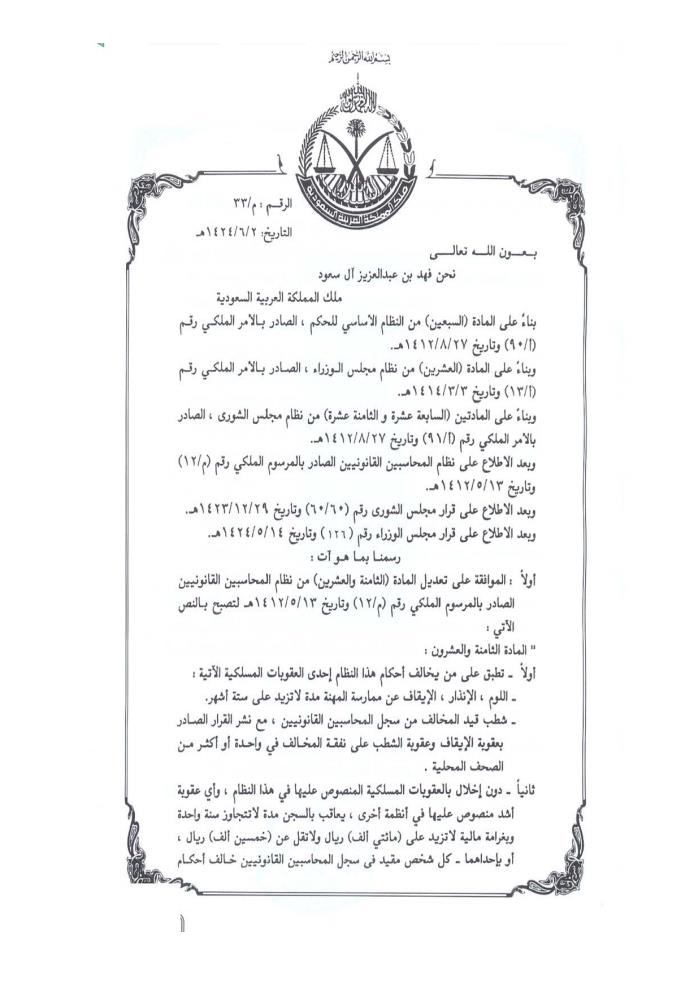 بسم الله الرحمن الرحيم
ملك المملكة العربية السعودية
الرقم : م/٣٣
التاريخ: ١٤٢٤/٦/٢هـ
بـعـــون اللـــه تعالـــى
نحن فهد بن عبدالعزيز آل سعود
ملك المملكة العربية السعودية
بناءً على المادة (السبعين) من النظام الأساسي للحكم ، الصادر بـالأمر الملكـي رقـم
(أ/٩٠) وتاريخ ١٤١٢/٨/٢٧هـ.
وبناءً على المادة (العشرين) من نظام مجلس الـوزراء ، الصـادر بـالأمر الملكـي رقـم
(أ/١٣) وتاريخ ١٤١٤/٣/٣هـ.
وبناءً على المادتين (السابعة عشرة و الثامنة عشرة) من نظام مجلس الشورى ، الصادر
بالأمر الملكي رقم (أ/٩١) وتاريخ ١٤١٢/٨/٢٧هـ.
وبعد الاطلاع على نظام المحاسبين القانونيين الصادر بالمرسوم الملكي رقم (م/١٢)
وتاريخ ١٤١٢/٥/١٣هـ.
وبعد الاطلاع على قرار مجلس الشورى رقم (٦٠/٦٠) وتاريخ ١٤٢٣/١٢/٢٩هـ.
وبعد الاطلاع على قرار مجلس الوزراء رقم (١٢٦) وتاريخ ١٤٢٤/٥/١٤هـ.
رسمنـا بمـا هـو آت :
أولاً : الموافقة على تعديل المادة (الثامنة والعشرين) من نظام المحاسبين القانونيين
الصادر بالمرسوم الملكي رقم (م/١٢) وتاريخ ١٤١٢/٥/١٣هـ لتصبح بـالنص
الآتي :
" المادة الثامنة والعشرون :
أولاً ـ تطبق على من يخالف أحكام هذا النظام إحدى العقوبات المسلكية الآتية :
ـ اللوم ، الإنذار ، الإيقاف عن ممارسة المهنة مدة لاتزيد على ستة أشهر.
ـ شطب قيد المخالف من سجل المحاسبين القانونيين ، مع نشر القرار الصادر
بعقوبة الإيقاف وعقوبة الشطب على نفقـة المخالف في واحدة أو أكثـر مـن
الصحف المحلية .
ثانياً ـ دون إخلال بالعقوبات المسلكية المنصوص عليها في هذا النظام ، وأي عقوبة
أشد منصوص عليها في أنظمة أخرى ، يعاقب بالسجن مدة لاتتجاوز سنة واحدة
وبغرامة مالية لاتزيد على (مائتي ألف) ريال ولاتقل عن (خمسين ألف) ريال ،
أو بإحداهما ـ كل شخص مقيد في سجل المحاسبين القانونيين خالف أحكام